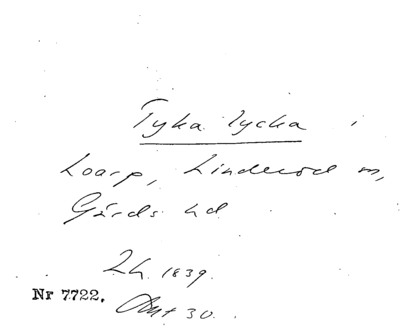 Tyka lycka i
Loarp, Linderöd sn,
Gärds hd
Lh. 1839.
Nr 7722. Akt 30.